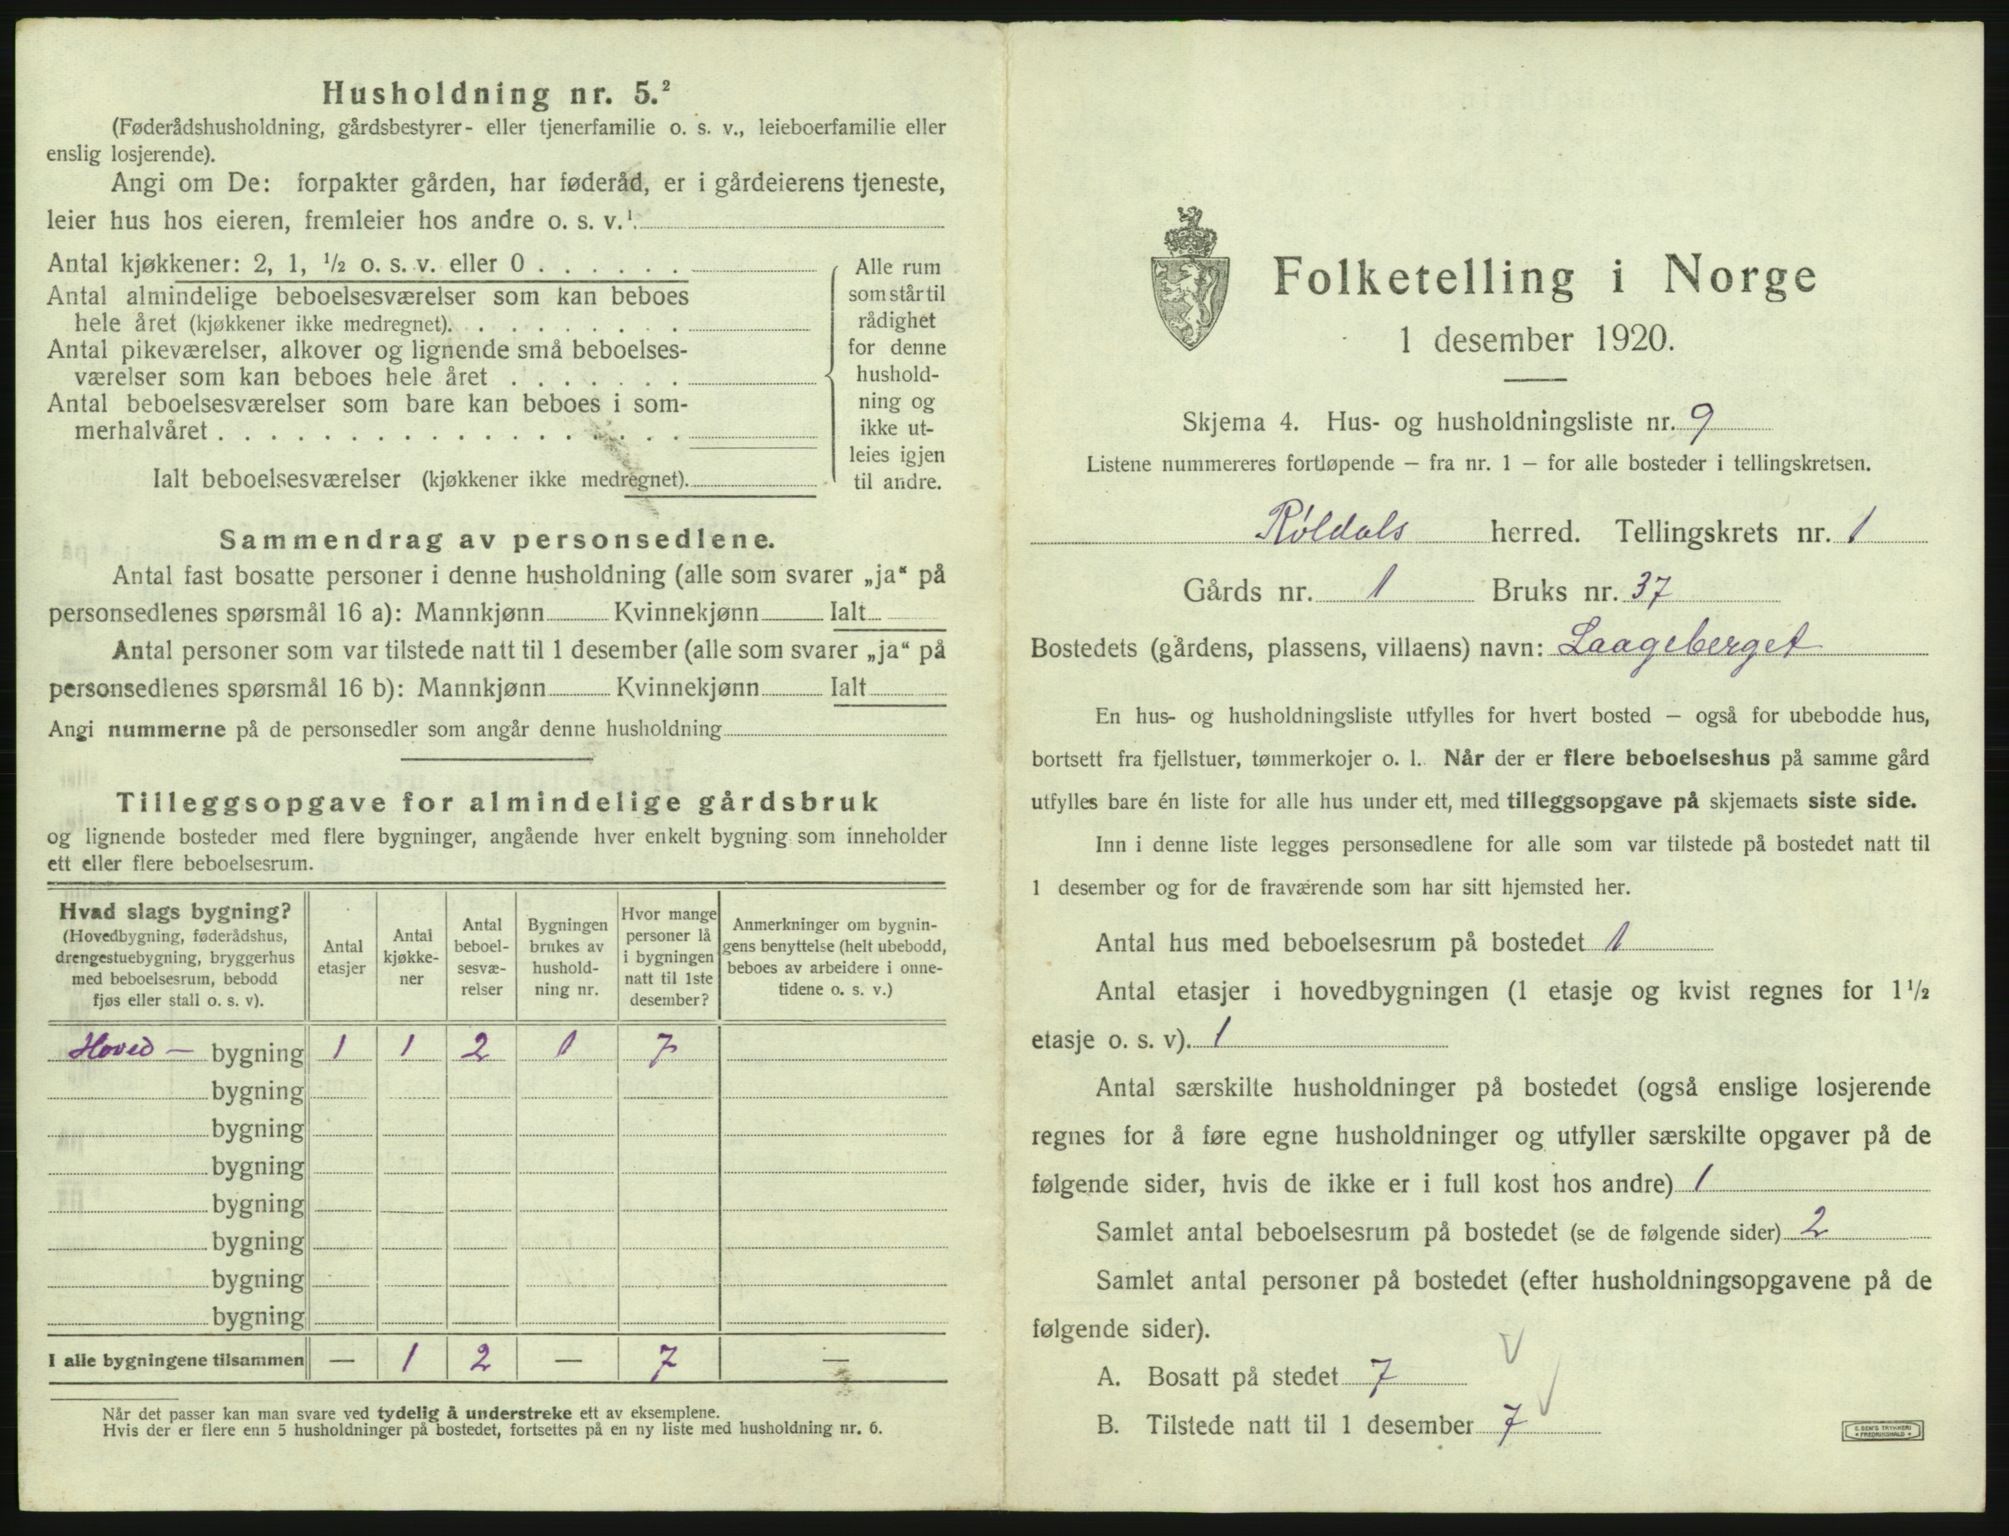 Husholdning nr. 5.²
(Føderådshusholdning, gårdsbestyrer- eller tjenerfamilie o. s. v., leieboerfamilie eller
enslig losjerende).
Angi om De: forpakter gården, har føderåd, er i gårdeierens tjeneste,
leier hus hos eieren, fremleier hos andre o. s. v.¹
Antal kjøkkener: 2, 1, ½ o. s. v. eller 0 . . . . . .
Antal almindelige beboelsesværelser som kan beboes
hele året (kjøkkener ikke medregnet). . . . . . . . .
Antal pikeværelser, alkover og lignende små beboelses-
værelser som kan beboes hele året . . . . . . .
Antal beboelsesværelser som bare kan beboes i som-
merhalvåret . . . . . . . . . . . . . . . . . .
Ialt beboelsesværelser (kjøkkener ikke medregnet).
Alle rum
som står til
rådighet
for denne
hushold-
ning og
ikke ut-
leies igjen
til andre.
Sammendrag av personsedlene.
Antal fast bosatte personer i denne husholdning (alle som svarer „ja“ på
personsedlenes spørsmål 16 a): Mannkjønn Kvinnekjønn Ialt
Antal personer som var tilstede natt til 1 desember (alle som svarer „ja“ på
personsedlenes spørsmål 16 b): Mannkjønn Kvinnekjønn Ialt
Angi nummerne på de personsedler som angår denne husholdning
Tilleggsopgave for almindelige gårdsbruk
og lignende bosteder med flere bygninger, angående hver enkelt bygning som inneholder
ett eller flere beboelsesrum.
Hvad slags bygning?
(Hovedbygning, føderådshus,
drengestuebygning, bryggerhus
med beboelsesrum, bebodd
fjøs eller stall o. s. v).
Antal
etasjer
Antal
kjøkke-
ner
Antal
beboel-
sesvæ-
relser
Bygningen
brukes av
hushold-
ning nr.
Hvor mange
personer lå
i bygningen
natt til 1ste
desember?
Anmerkninger om bygnin-
gens benyttelse (helt ubebodd,
beboes av arbeidere i onne-
tidene o. s. v.)
Hoved — bygning 1 1 2 1 7
bygning
bygning
bygning
bygning
bygning
bygning
bygning
I alle bygningene tilsammen — 1 2 — 7 —
Når det passer kan man svare ved tydelig å understreke ett av eksemplene.
Hvis der er flere enn 5 husholdninger på bostedet, fortsettes på en ny liste med husholdning nr. 6.
Folketelling i Norge
1 desember 1920.
Skjema 4. Hus- og husholdningsliste nr. 9
Listene nummereres fortløpende — fra nr. 1 — for alle bosteder i tellingskretsen.
Røldals herred. Tellingskrets nr. 1
Gårds nr. 1 Bruks nr. 37
Bostedets (gårdens, plassens, villaens) navn: Laageberget
En hus- og husholdningsliste utfylles for hvert bosted — også for ubebodde hus,
bortsett fra fjellstuer, tømmerkojer o. l. Når der er flere beboelseshus på samme gård
utfylles bare én liste for alle hus under ett, med tilleggsopgave på skjemaets siste side.
Inn i denne liste legges personsedlene for alle som var tilstede på bostedet natt til
1 desember og for de fraværende som har sitt hjemsted her.
Antal hus med beboelsesrum på bostedet 1
Antal etasjer i hovedbygningen (1 etasje og kvist regnes for 1½
etasje o. s. v). 1
Antal særskilte husholdninger på bostedet (også enslige losjerende
regnes for å føre egne husholdninger og utfyller særskilte opgaver på de
følgende sider, hvis de ikke er i full kost hos andre) 1
Samlet antal beboelsesrum på bostedet (se de følgende sider) 2
Samlet antal personer på bostedet (efter husholdningsopgavene på de
følgende sider).
A. Bosatt på stedet 7
B. Tilstede natt til 1 desember 7
E. SEM'S TRYKKERI
FREDRIKSHALD